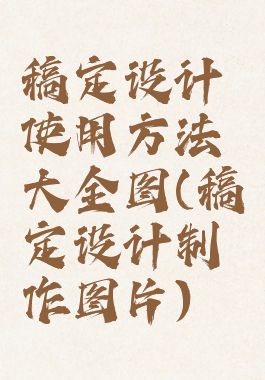 稿定设计
使用方法
大全图(稿
定设计制
作图片)